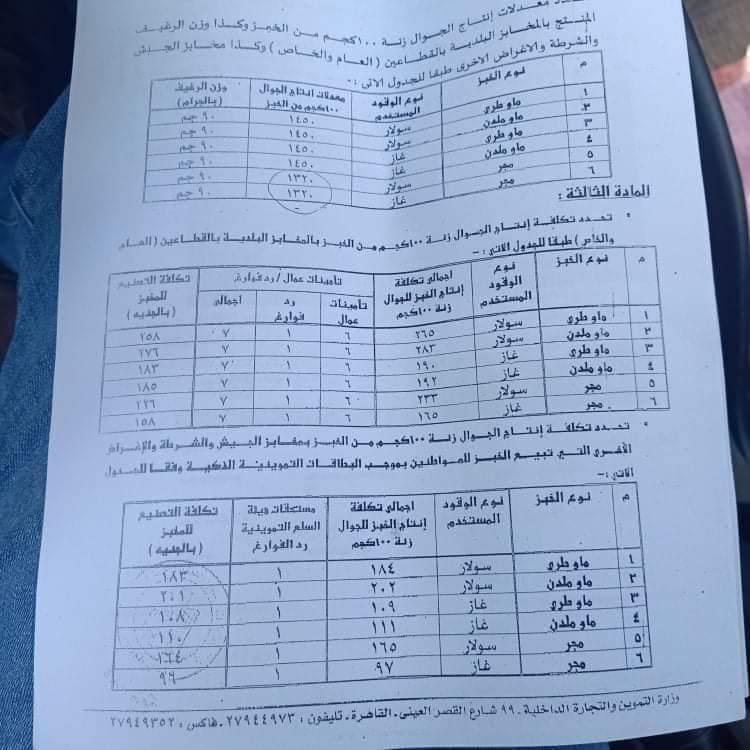 تحدد معدلات إنتاج الجوال زنة ١٠٠كجم من الخبز وكذا وزن الرغيف
المنتج بالمخابز البلدية بالقطاعين (العام والخاص) وكذا مخابز الجيش
والشرطة والاغراض الاخرى طبقا للجدول الاتى :-
م نوع الخبز نوع الوقود المستخدم معدلات انتاج الجوال ١٠٠كجم من الخبز وزن الرغيف (بالجرام)
١ ماو طرى سولار ١٤٥٠ ٩٠ جم
٢ ماو ملدن سولار ١٤٥٠ ٩٠ جم
٣ ماو طرى غاز ١٤٥٠ ٩٠ جم
٤ ماو ملدن غاز ١٤٥٠ ٩٠ جم
٥ مجر سولار ١٣٢٠ ٩٠ جم
٦ مجر غاز ١٣٢٠ ٩٠ جم
المادة الثالثة :
• تحدد تكلفة إنتاج الجوال زنة ١٠٠كجم من الخبز بالمخابز البلدية بالقطاعين (العام
والخاص) طبقا للجدول الاتى :-
م نوع الخبز نوع الوقود المستخدم اجمالى تكلفة إنتاج الخبز للجوال زنة ١٠٠كجم تأمينات عمال / رد فوارغ تكلفة التصنيع للمخبز (بالجنيه)
تأمينات عمال رد فوارغ اجمالى
١ ماو طرى سولار ٢٦٥ ٦ ١ ٧ ٢٥٨
٢ ماو ملدن سولار ٢٨٣ ٦ ١ ٧ ٢٧٦
٣ ماو طرى غاز ١٩٠ ٦ ١ ٧ ١٨٣
٤ ماو ملدن غاز ١٩٢ ٦ ١ ٧ ١٨٥
٥ مجر سولار ٢٣٣ ٦ ١ ٧ ٢٢٦
٦ مجر غاز ١٦٥ ٦ ١ ٧ ١٥٨
• تحدد تكلفة إنتاج الجوال زنة ١٠٠كجم من الخبز بمخابز الجيش والشرطة والإغراض
الأخرى التى تبيع الخبز للمواطنين بموجب البطاقات التموينية الذكية وفقا للجدول
الاتى :-
م نوع الخبز نوع الوقود المستخدم اجمالى تكلفة إنتاج الخبز للجوال زنة ١٠٠كجم مستحقات هيئة السلع التموينية رد الفوارغ تكلفة التصنيع للمخبز (بالجنيه)
١ ماو طرى سولار ١٨٤ ١ ١٨٣
٢ ماو ملدن سولار ٢٠٢ ١ ٢٠١
٣ ماو طرى غاز ١٠٩ ١ ١٠٨
٤ ماو ملدن غاز ١١١ ١ ١١٠
٥ مجر سولار ١٦٥ ١ ١٦٤
٦ مجر غاز ٩٧ ١ ٩٦
وزارة التموين والتجارة الداخلية - ٩٩ شارع القصر العينى - القاهرة - تليفون : ٢٧٩٤٤٩٧٣ - فاكس : ٢٧٩٤٩٣٥٢